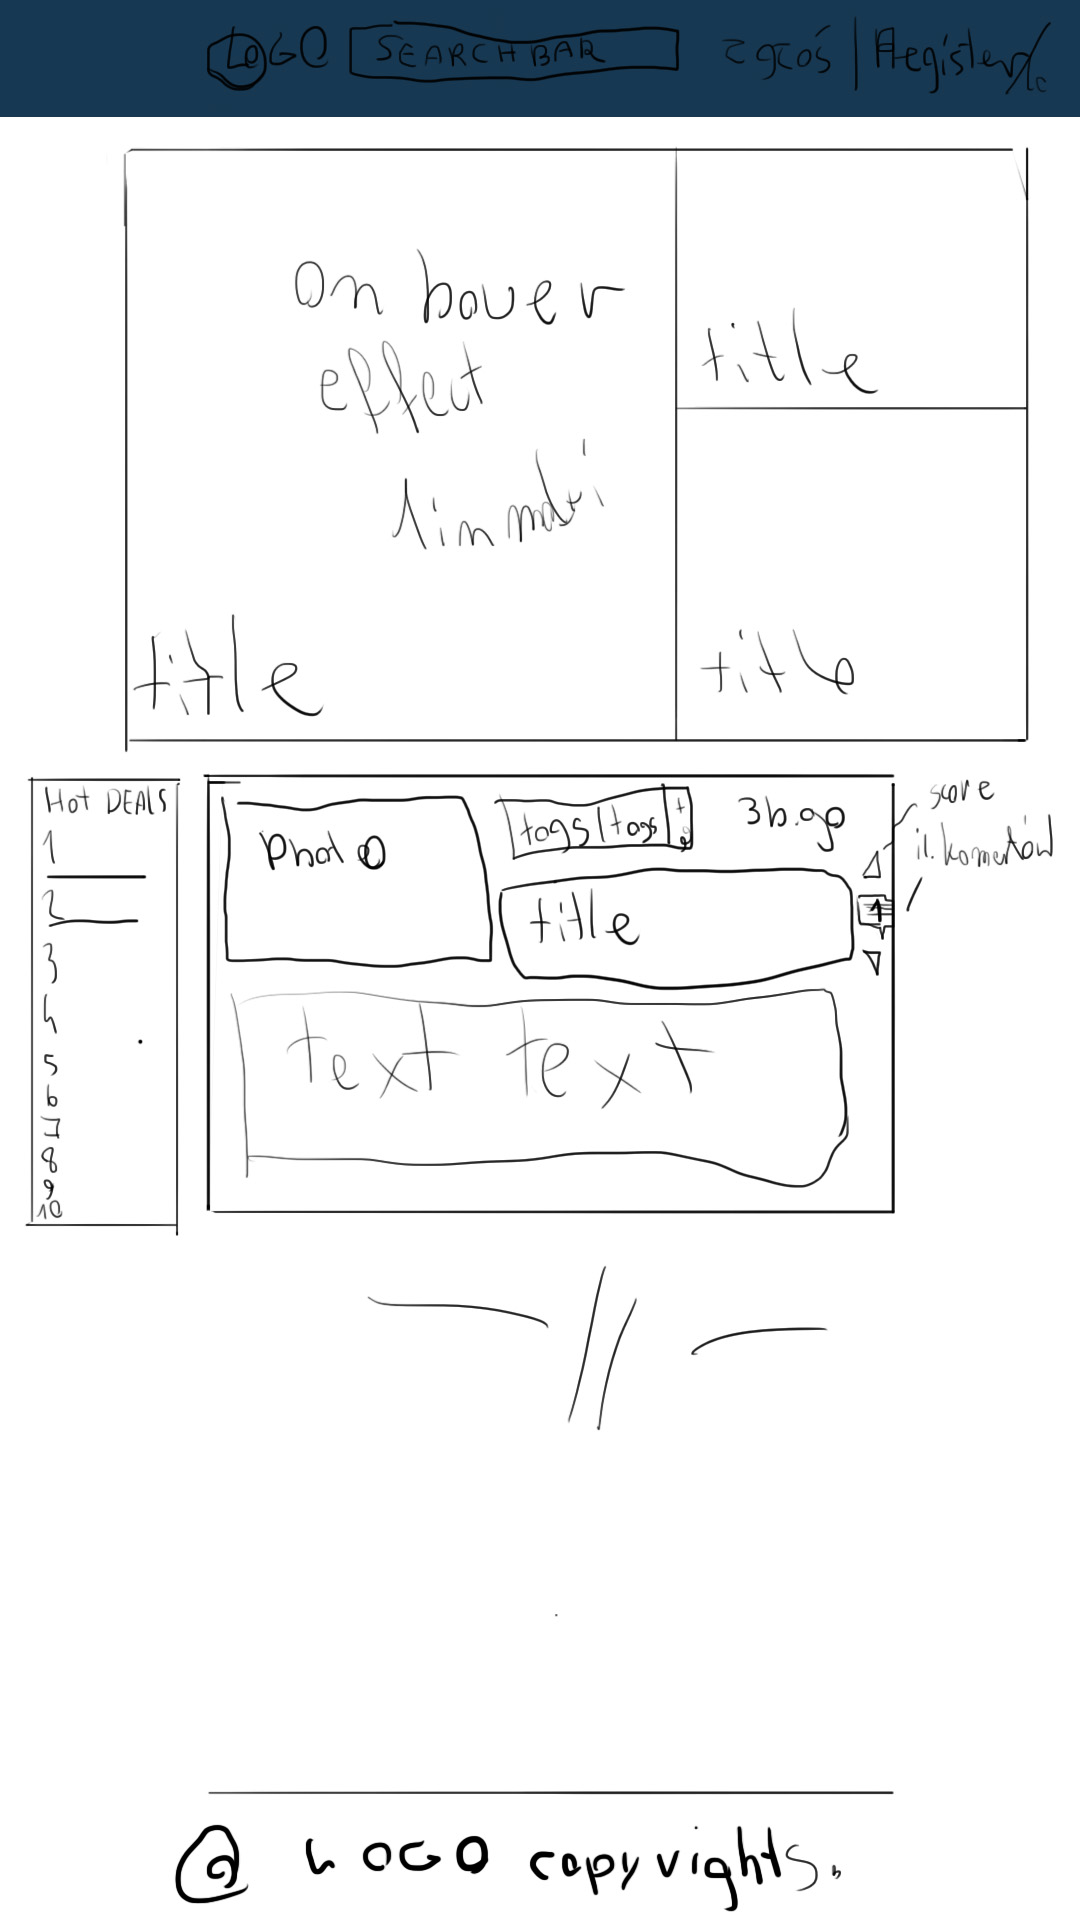 LOGO SEARCHBAR | Register
on hover
effect
title
title
title
Hot DEALS
1
2
3
4
5
6
7
8
9
10
Photo
tags | tags |
3h.ago
score
il. komentów
title
text text
@ LOGO copyrights.